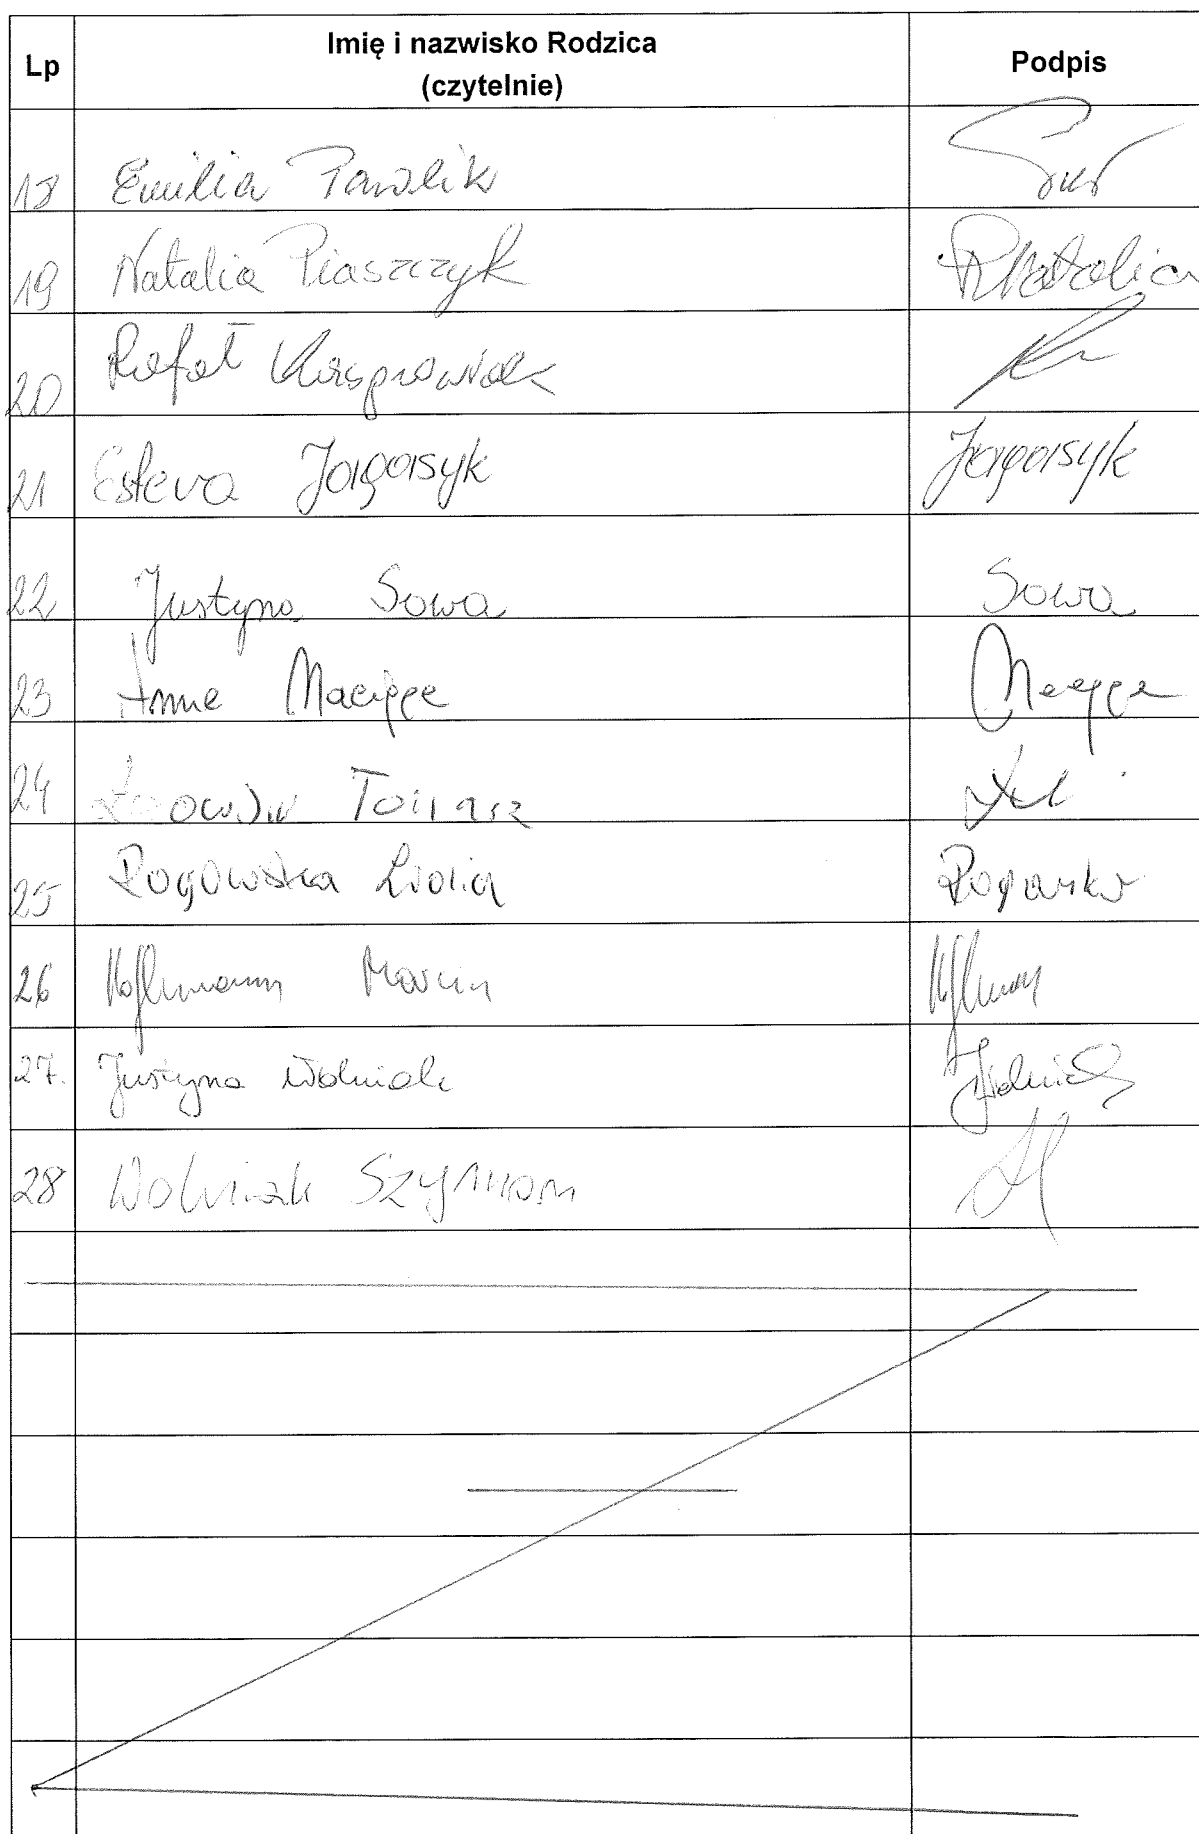 Lp Imię i nazwisko Rodzica (czytelnie) Podpis
18 Emilia Pawlik
19 Natalia Piaszczyk P.Natalia
20 Rafał Kasprowiak
21 Estera Jagasyk Jagasyk
22 Justyna Sowa Sowa
23 Anna
24 Tomasz
25 Rogowska Lidia Rogowska
26 Hoffmann Marcin
27. Justyna Wolniak JWolniak
28 Wolniak Szymon